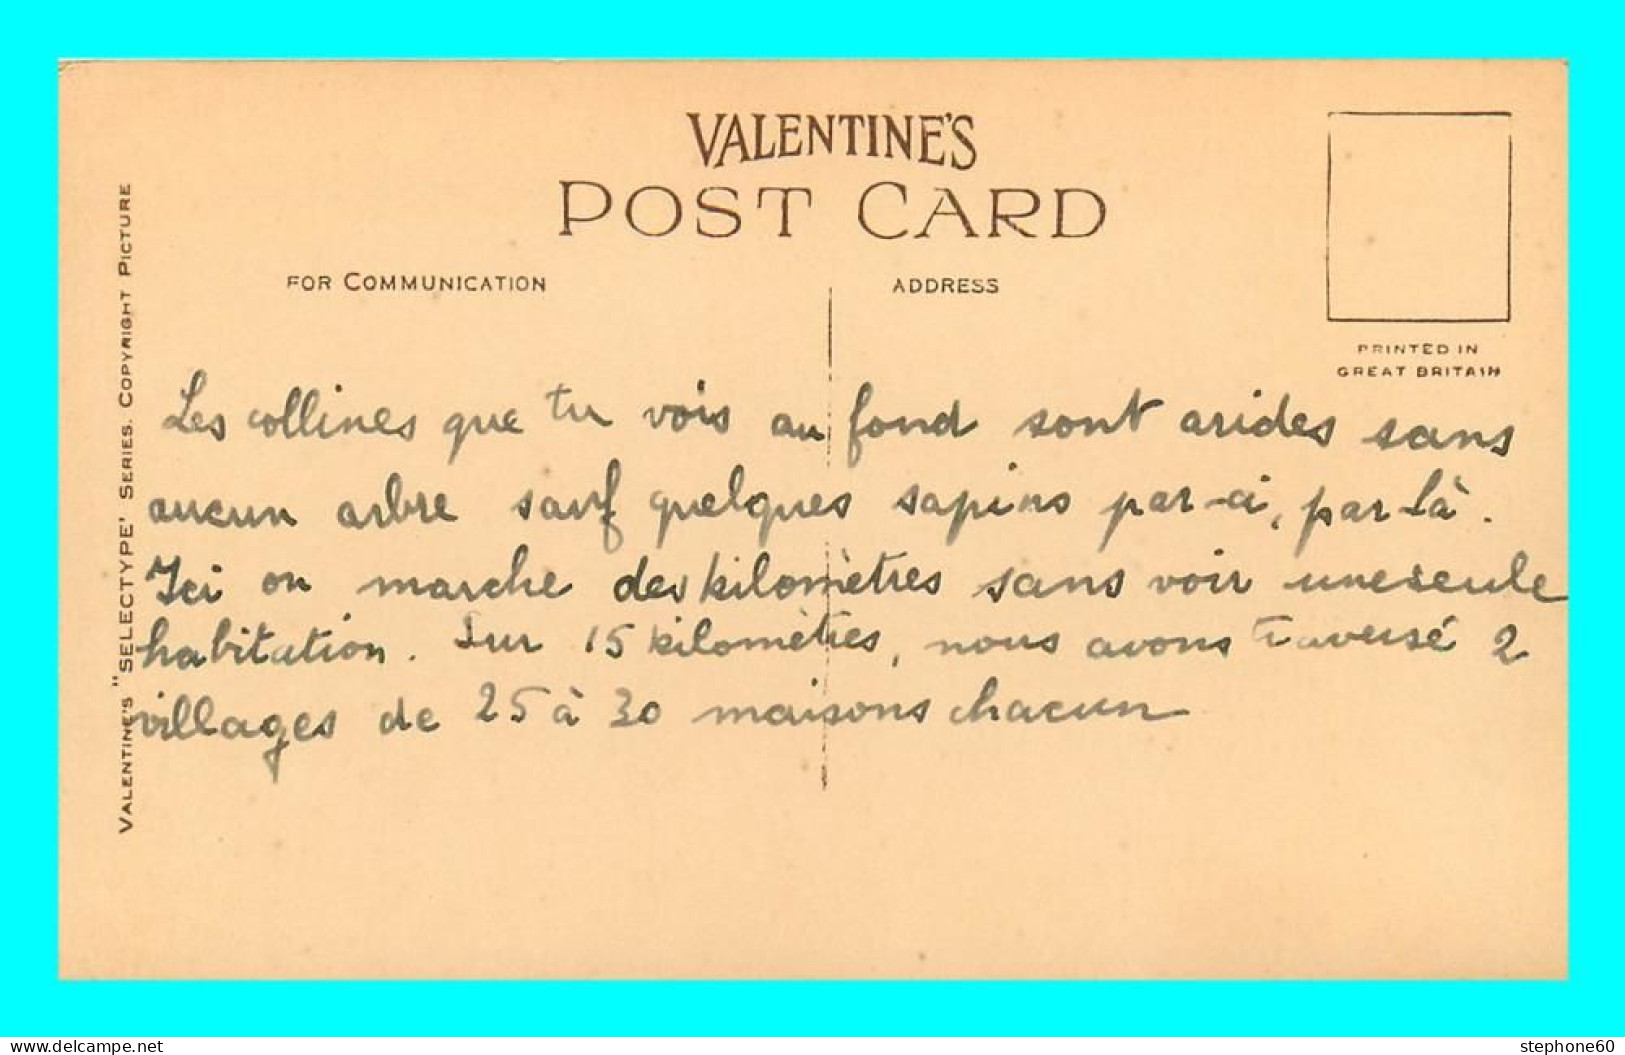 VALENTINE'S
POST CARD
FOR COMMUNICATION
ADDRESS
PRINTED IN
GREAT BRITAIN
VALENTINE'S "SELECTYPE' SERIES. COPYRIGHT PICTURE
Les collines que tu vois au fond sont arides sans
aucun arbre sauf quelques sapins par-ci, par-là.
Ici on marche des kilomètres sans voir une seule
habitation. Sur 15 kilomètres, nous avons traversé 2
villages de 25 à 30 maisons chacun
www.delcampe.net
stephone60